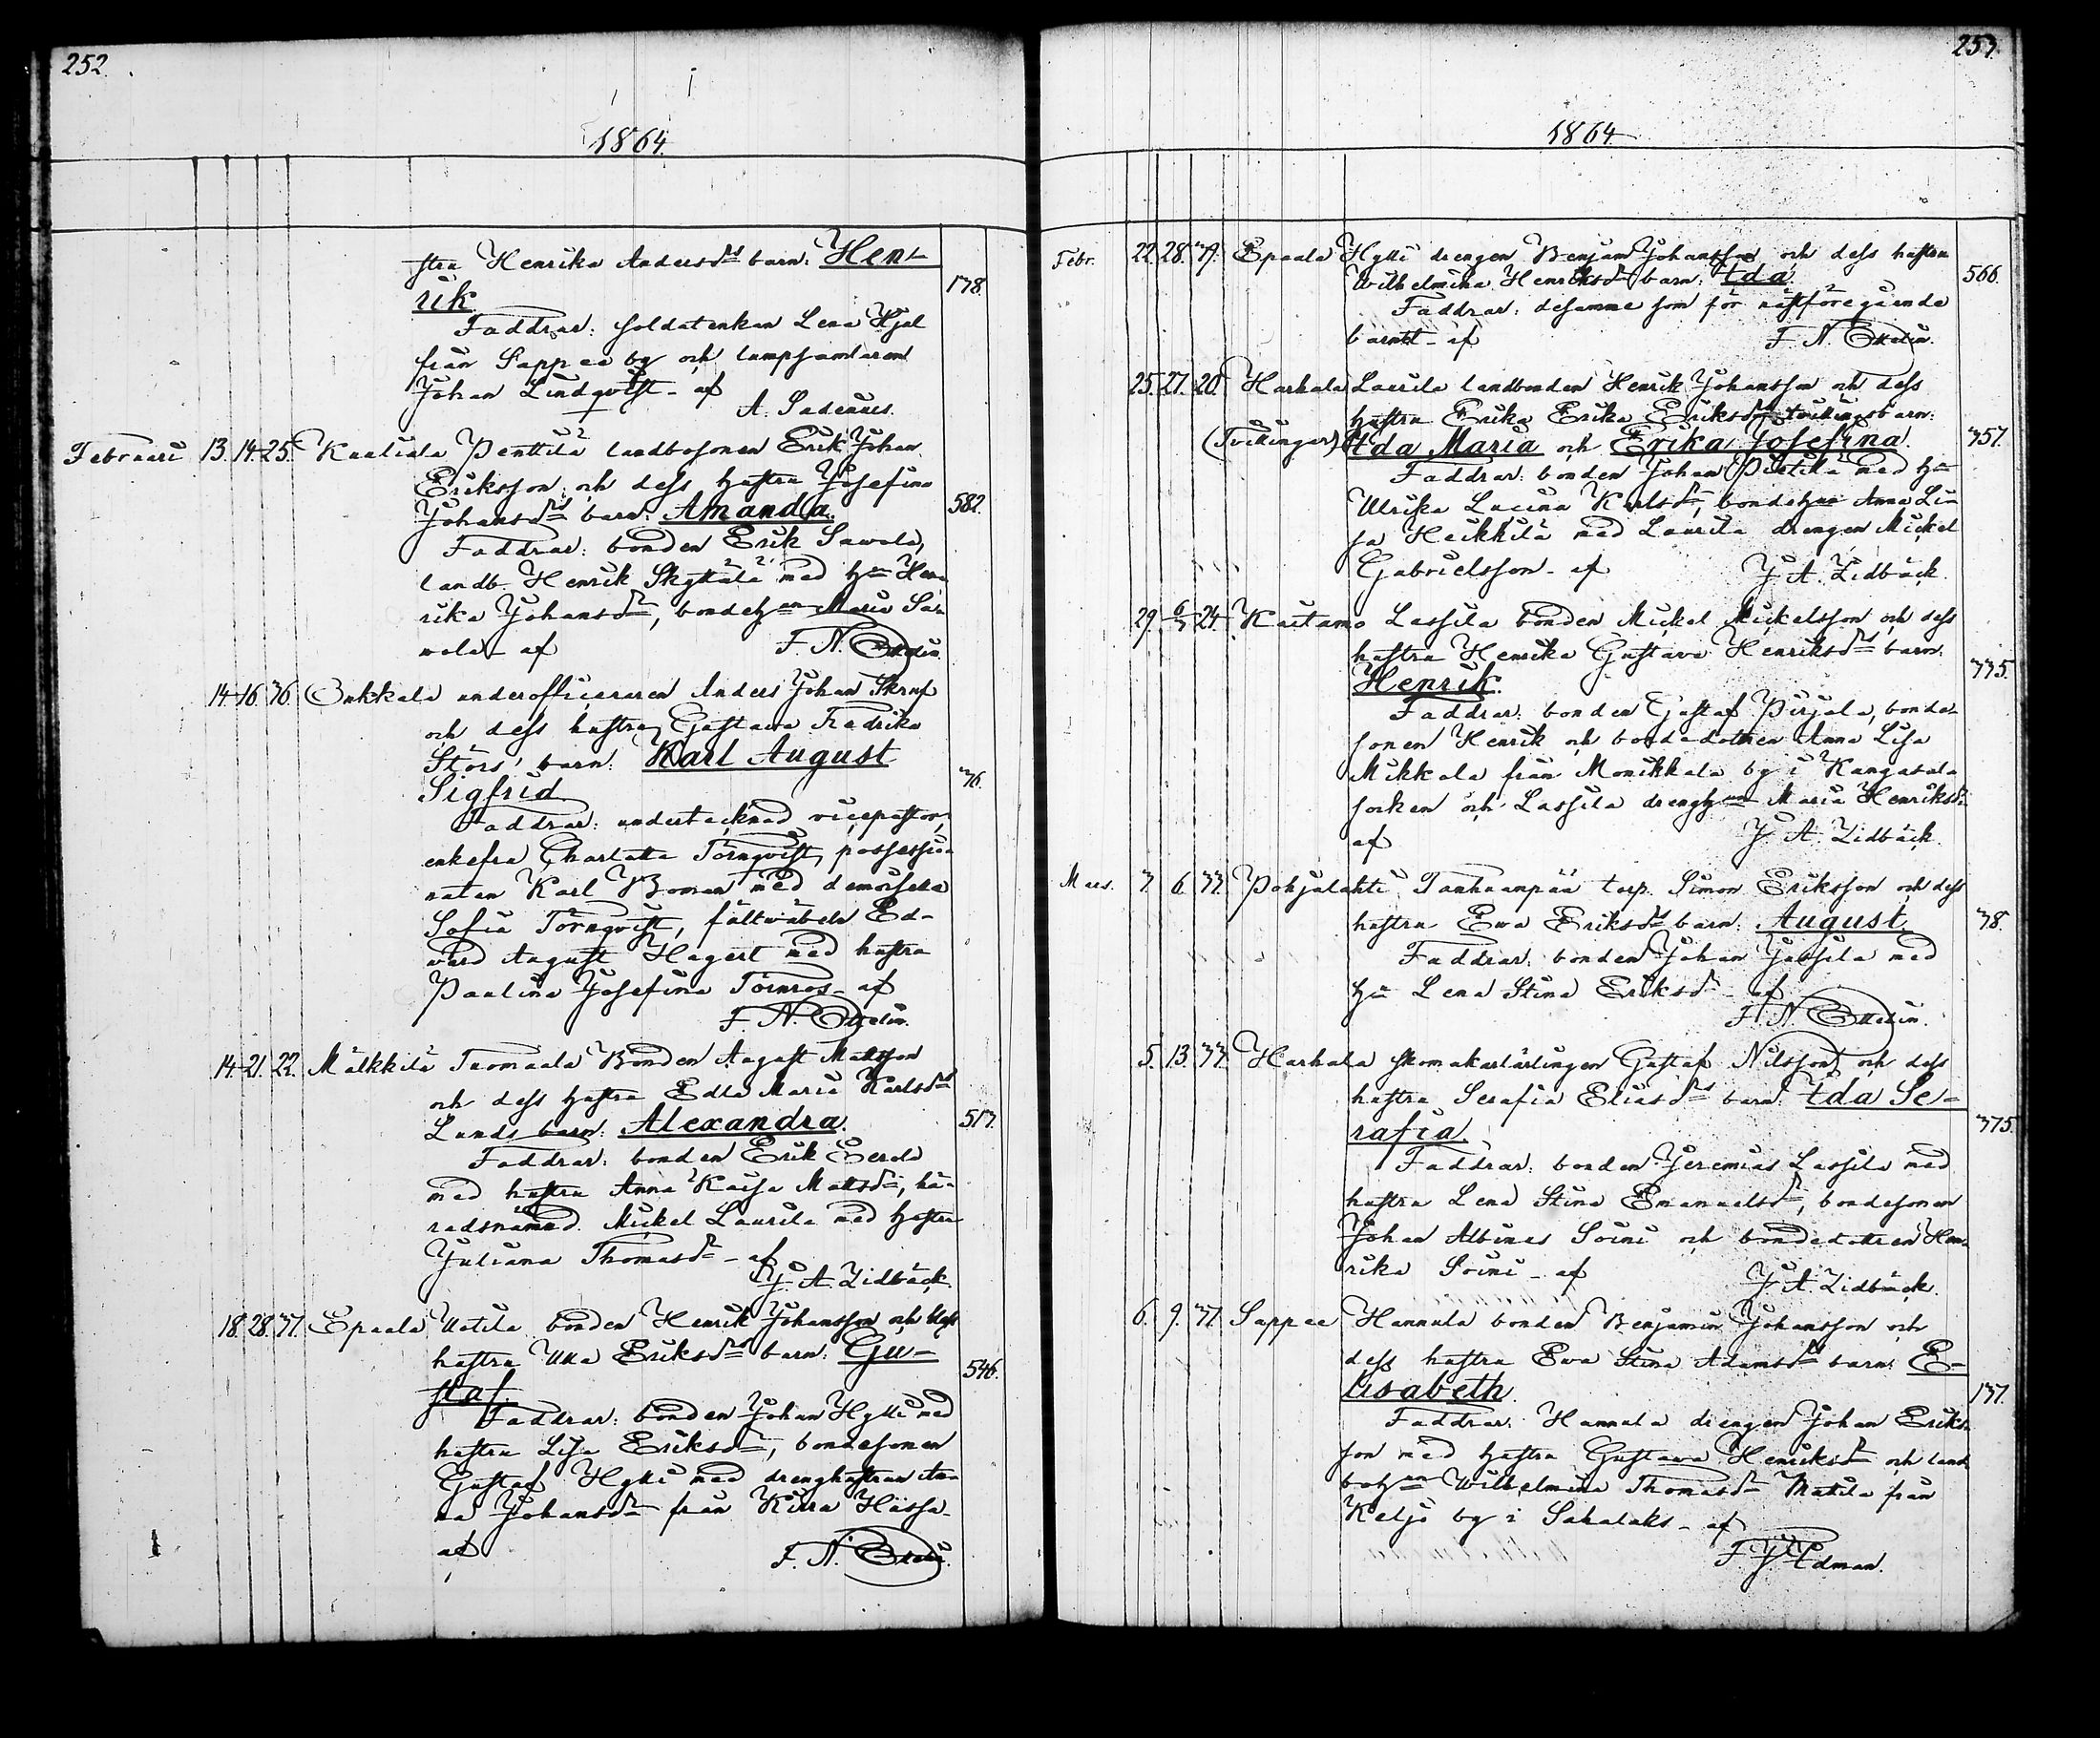 252.
1864.
stru Henrika Andersdrs barn: Hen-
rik 178.
Faddrar: soldatenkan Lena Hjel
från Sappee by och lumpsamlaren
Johan Lindqvist - af
A. Sadenius.
Februari 13. 14. 25. Kaaliala Penttilä landbosonen Erik Johan
Eriksson och dess hustru Josefina
Johansdrs barn: Amanda. 582.
Faddrar: bonden Erik Sawola,
landb. Henrik Skyttälä med hu Hen-
rika Johansdr, bondehun Maria Sa-
wola - af F. N. Ottelin.
14. 16. 36. Onkkala underofficeraren Anders Johan Skruf
och dess hustru Gustava Fredrika
Störs' barn: Karl August
Sigfrid 36.
Faddrar: undertecknad vicepastor,
enkefru Charlotta Törnqvist, possessio-
naten Karl Boman med demoiselle
Sofia Törnqvist, fältwäbeln Ed-
ward August Hagert med hustru
Paulina Josefina Törnros - af
F. N. Ottelin.
14. 21. 22. Mälkkilä Tuomaala Bonden August Mattsson
och dess hustru Edla Maria Karlsdr
Lunds barn: Alexandra. 517.
Faddrar: bonden Erik Eerola
med hustru Anna Kaisa Mattsdr, hä-
radsnämnd. Mickel Laurila med hustru
Juliana Thomasdr - af
J. A. Lidbäck.
18. 28. 37. Epaala Uotila bonden Henrik Johansson och dess
hustru Ulla Eriksdrs barn: Gu-
staf. 546.
Faddrar: bonden Johan Hylli med
hustru Lisa Eriksdr, bondesonen
Gustaf Hylli med drenghustrun
na Johansdr från Kirra Hassa -
af F. N. Ottelin.
253.
1864.
Febr. 22. 28. 39. Epaala Hylli drengen Benjam. Johansson och dess hustru
Wilhelmina Henriksdrs barn: Ida. 566.
Faddrar: desamme som för nästföregående
barnet - af F. N. Ottelin.
25. 27. 20. Harhala Laurila landbonden Henrik Johansson och dess
hustru Erika Erika Eriksdrs tvillingsbarn:
(Tvillingar) Ida Maria och Erika Josefina. 357.
Faddrar: bonden Johan Pietilä med hu
Ulrika Lucina Karlsdr, bondehun Anna Li-
sa Heikkilä med Laurila drengen Mickel
Gabrielsson - af J. A. Lidbäck.
29. 6/3 24. Kaitamo Lassila bonden Mickel Mickelsson och dess
hustru Henrika Gustava Henriksdrs barn:
Henrik. 335.
Faddrar: bonden Gustaf Pirjola, bonde-
sonen Henrik och bondedottren Anna Lisa
Mikkola från Monikkala by i Kangasala
socken och Lassila drenghun Maria Henriksdr
af J. A. Lidbäck.
Mars. 3. 6. 33. Pohjalahti Tanhuanpää torp. Simon Eriksson och dess
hustru Ewa Eriksdrs barn: August. 38.
Faddrar: bonden Johan Jussila med
hu Lena Stina Eriksdr - af
F. N. Ottelin.
5. 13. 33. Harhala skomakarlärlingen Gustaf Nilsson och dess
hustru Serafia Eliasdrs barn: Ida Se-
rafia. 375.
Faddrar: bonden Jeremias Lassila med
hustru Lena Stina Emanuelsdr, bondesonen
Johan Albinus Soini och bondedottren Hen-
rika Soini - af J. A. Lidbäck.
6. 9. 37. Sappee Hannula bonden Benjamin Johansson och
dess hustru Ewa Stina Adamsdrs barn: E-
lisabeth. 137.
Faddrar: Hannula drengen Johan Eriks-
son med hustru Gustava Henriksdr och land-
bohun Wilhelmina Thomasdr Mattila från
Keljo by i Sahalaks - af
F. J. Edman.